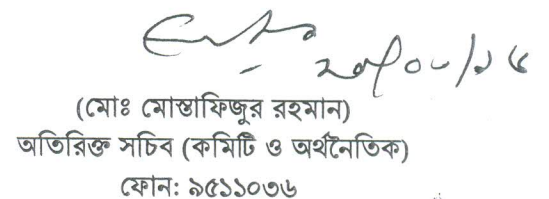 (মোঃ মোস্তাফিজুর রহমান)
অতিরিক্ত সচিব (কমিটি ও অর্থনৈতিক)
ফোন: ৯৫১১০৩৬